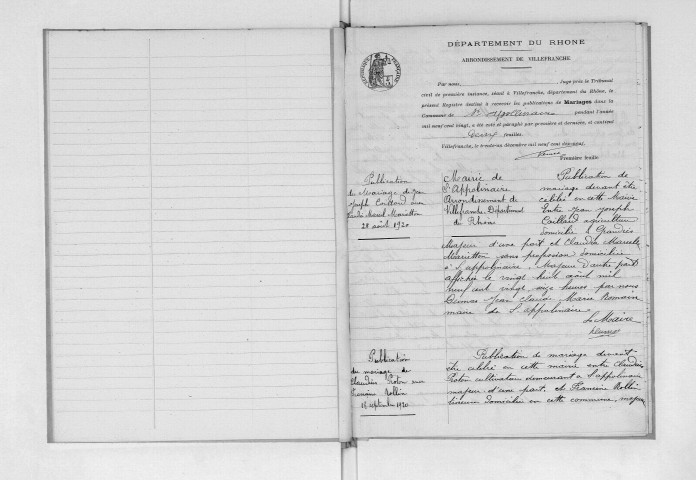 DÉPARTEMENT DU RHONE
ARRONDISSEMENT DE VILLEFRANCHE
Par nous, Juge près le Tribunal
civil de première instance, séant à Villefranche, département du Rhône, le
présent Registre destiné à recevoir les publications de Mariages dans la
Commune de St Appolinaire pendant l'année
mil neuf cent vingt, a été coté et paraphé par première et dernière, et contient
deux feuilles.
Villefranche, le trente-un décembre mil neuf cent dix-neuf.
Première feuille
Publication
du Mariage de Jean
Joseph avec
28 août 1920
Mairie de
St Appolinaire
Arrondissement de
Villefranche Département
du Rhône
Publication de
mariage devant être
célébré en cette Mairie
Entre Jean Joseph
agriculteur
domicilié à Grandris
Majeur d'une part et Claudia Marcelle
Marietton sans profession domiciliée
à St Appolinaire, Majeure d'autre part
affichée le vingt huit août mil
neuf cent vingt, heures par nous
Dumas Jean Claude Marie Romain
maire de St Appolinaire
Le Maire
Dumas
Publication
du mariage de
Claudius Proton avec
Francine Rollin
16 septembre 1920
Publication de mariage devant
être célébré en cette mairie entre Claudius
Proton cultivateur demeurant à St Appolinaire
majeur d'une part, et Francine Rollin
domiciliée en cette commune, majeure